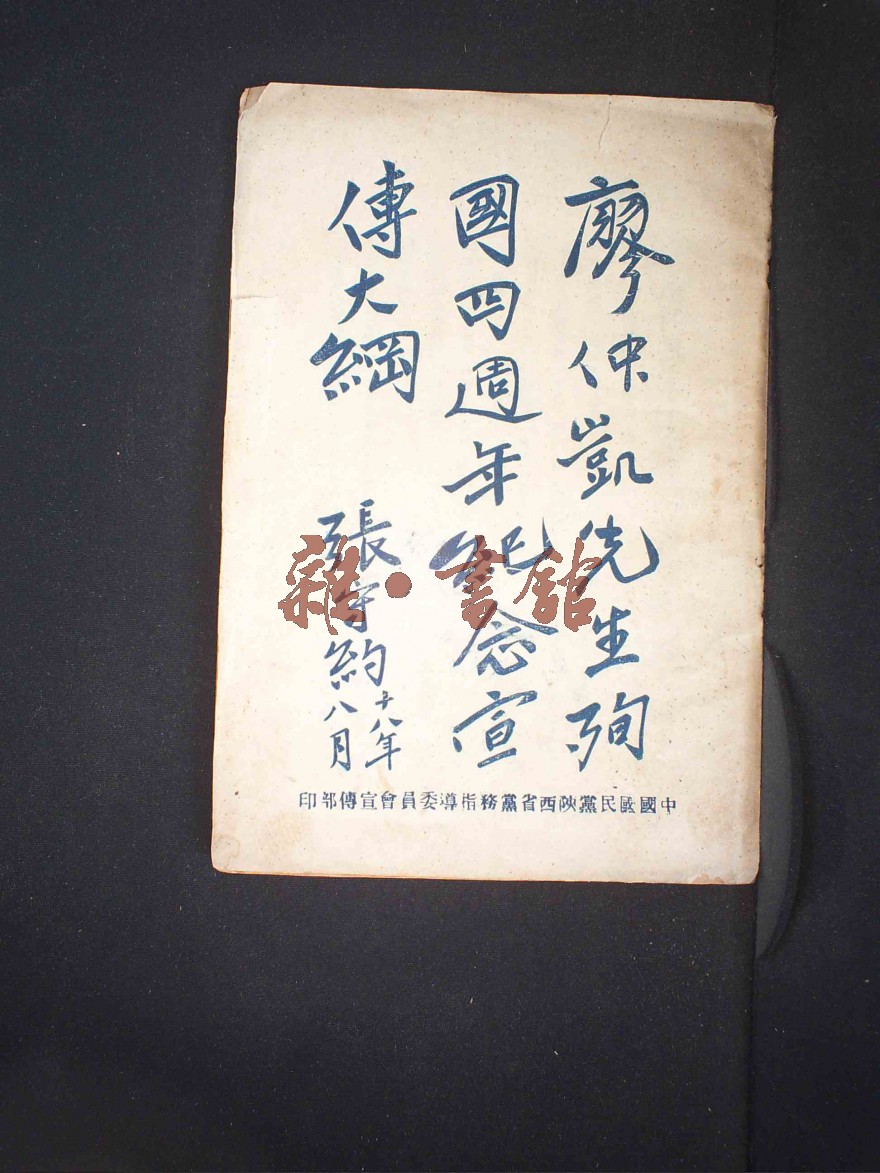 廖仲凱先生殉
國四週年紀念宣
傳大綱
張守約
十八年
八月
中國國民黨陝西省黨務指導委員會宣傳部印
雜·書館